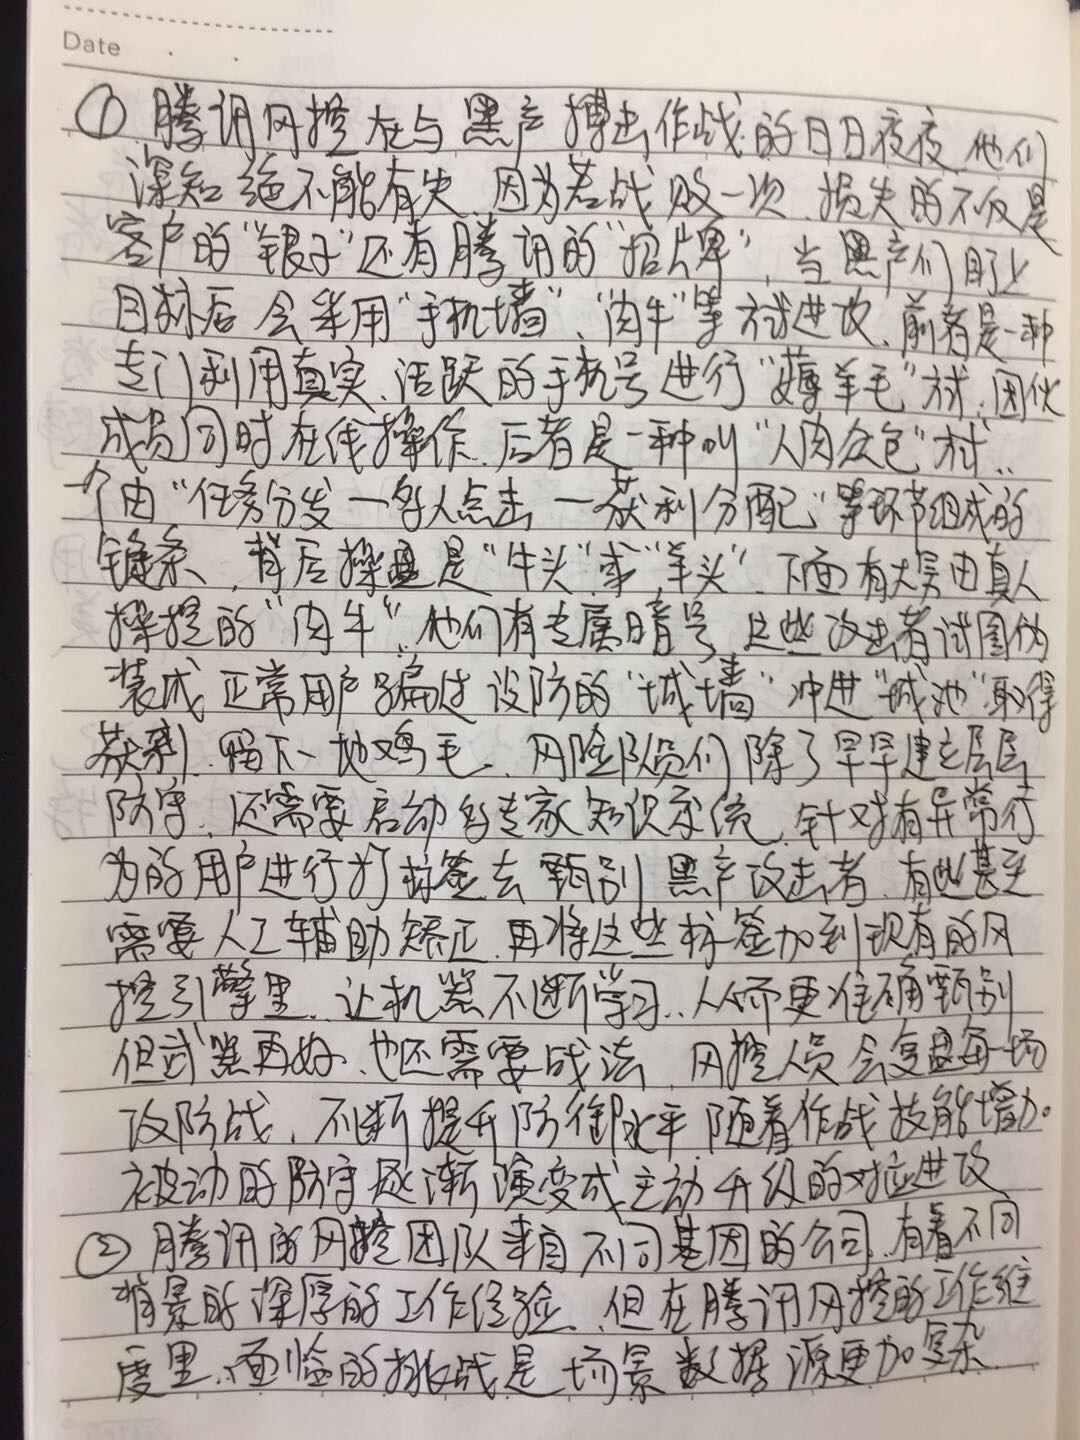 Date
① 腾讯风控在与黑产搏击作战的日日夜夜 他们
深知绝不能有失、因为若战败一次、损失的不仅是
客户的"银子"还有腾讯的"招牌"、当黑产们盯上
目标后 会采用"手机墙"、"肉牛"等方式进攻、前者是一种
专门利用真实、活跃的手机号进行"薅羊毛"方式、团伙
成员同时在线操作、后者是一种叫"人肉众包"方式、
一个由"任务分发—多人点击—获利分配"等环节组成的
链条、背后操盘是"牛头"或"羊头"、下面有大量由真人
操控的"肉牛"、他们有专属暗号、这些攻击者试图伪
装成正常用户骗过设防的"城墙"冲进"城池"取得
获利、留下一地鸡毛、风险队员们除了早早建立层层
防守、还需要启动专家知识系统、针对有异常行
为的用户进行打标签去甄别黑产攻击者、有些甚至
需要人工辅助矫正、再将这些标签加到现有的风
控引擎里、让机器不断学习、从而更准确甄别
但武器再好、也还需要战法、风控人员会复盘每一场
攻防战、不断提升防御水平 随着作战技能增加。
被动的防守逐渐演变成主动升级的对应进攻
② 腾讯的风控团队来自不同基因的公司、有着不同
背景的深厚的工作经验、但在腾讯风控的工作维
度里、面临的挑战是场景数据源更加复杂